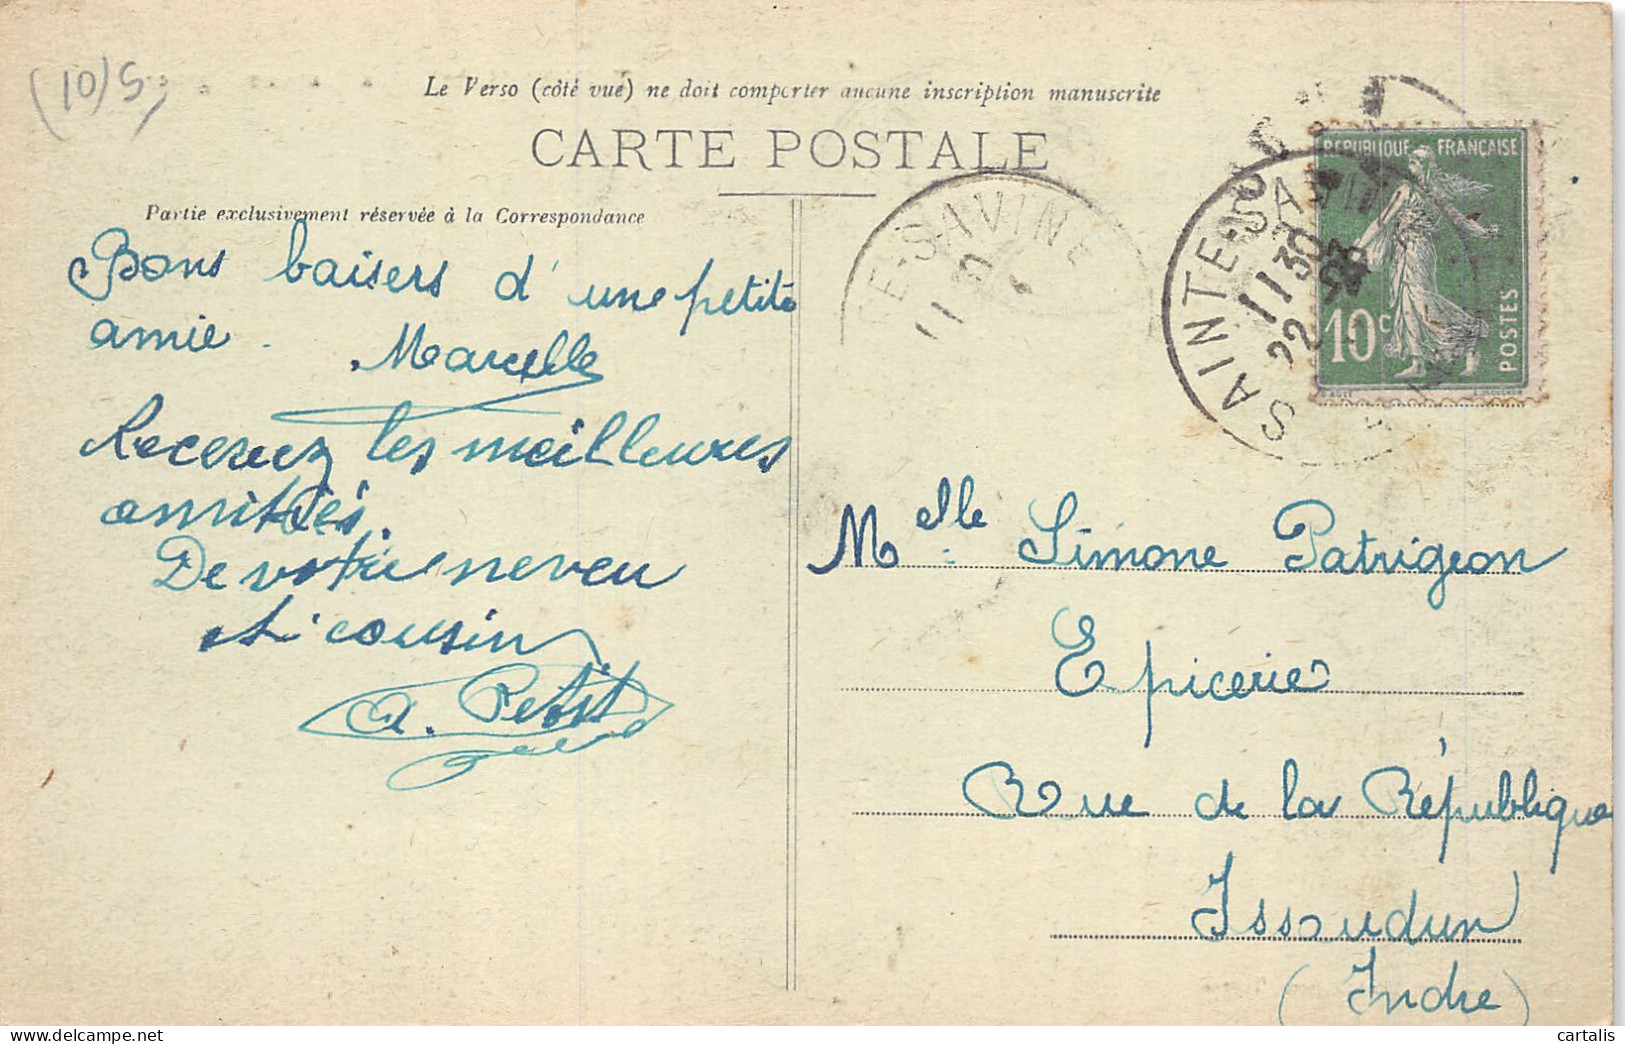 (10)5
Le Verso (côté vue) ne doit comporter aucune inscription manuscrite
CARTE POSTALE
Partie exclusivement réservée à la Correspondance
Bons baisers d'une petite
amie. Marcelle
Recevez les meilleures
amitiés.
De votre neveu
et cousin
A. Petit
TE-SAVINE
11
SAINTE-SAVINE
11 30
22
REPUBLIQUE FRANÇAISE
10c
POSTES
Melle Simone Patrigeon
Epicerie
Rue de la République
Issoudun
(Indre)
cartalis